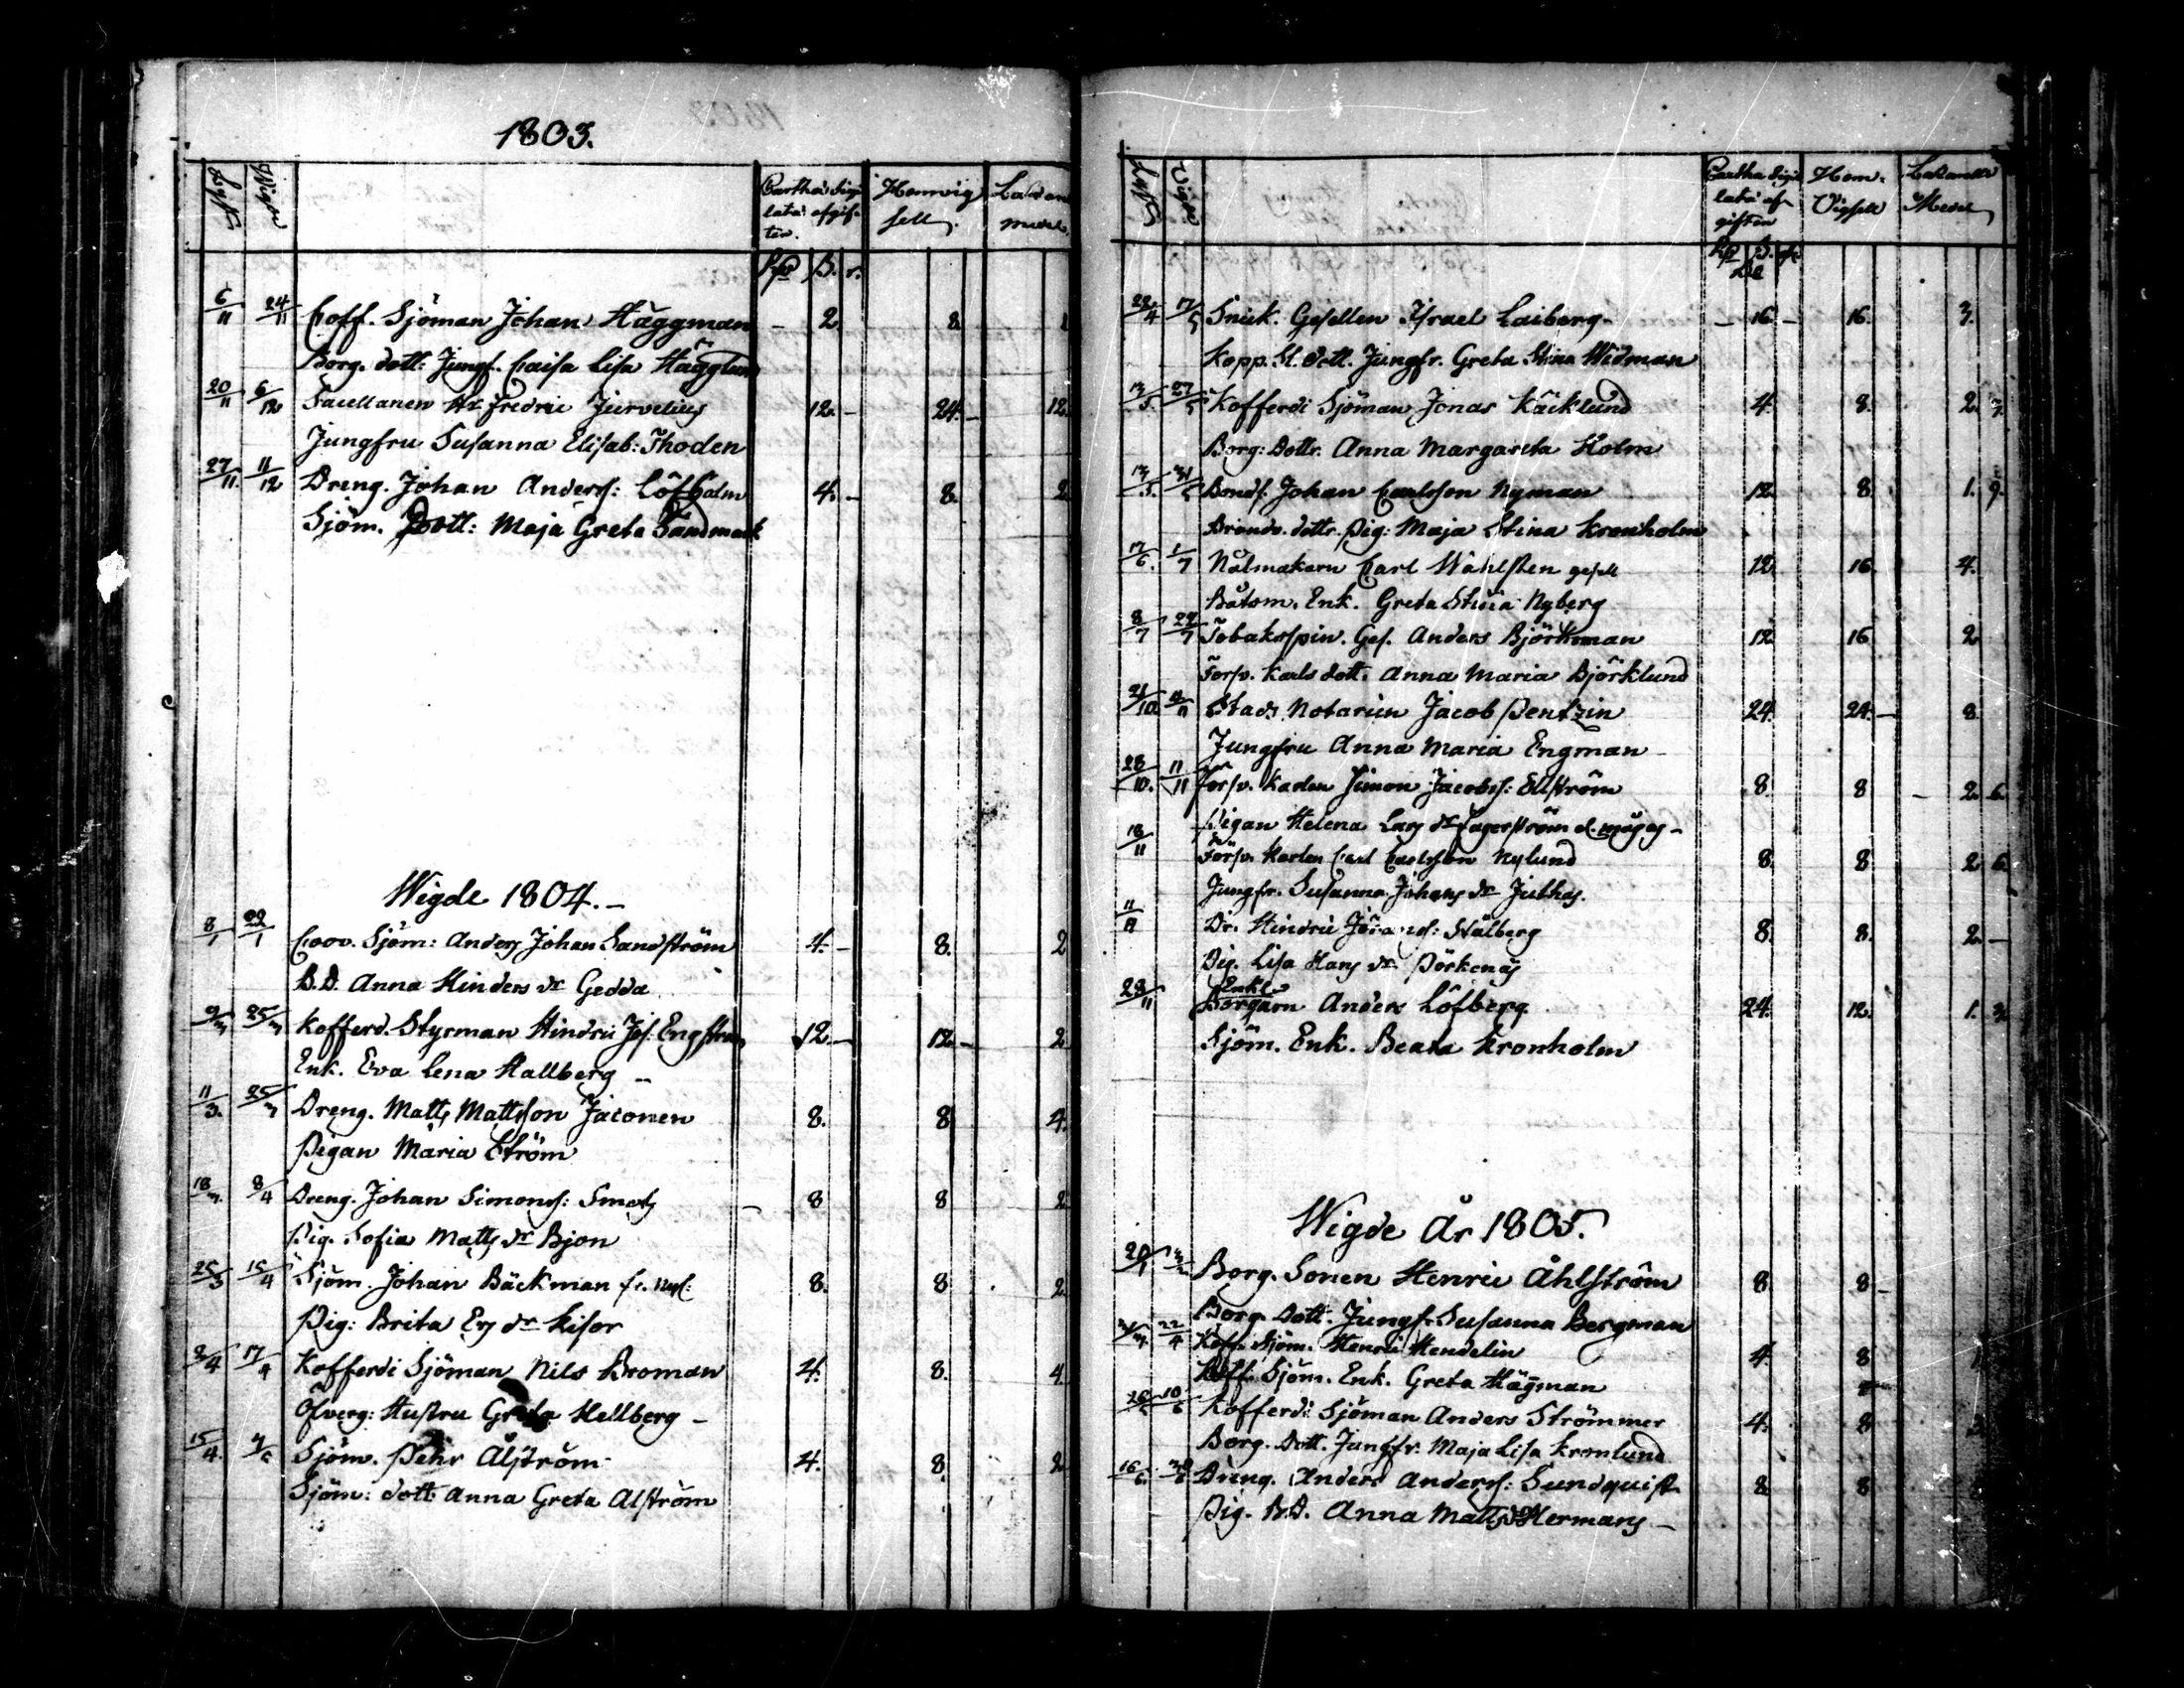 1803.
Lyst Wigde Cartha Sigi Hemvig Lasarett
lata afgif sell medel.
ter.
6/11 24/11 Coff. Sjöman Johan Häggman – 2 8
Borg. dott. Jungf. Caisa Lisa Hägglund
20/11 6/12 Hr Fredric 12. – 24. – 12.
Jungfru Susanna Elisab: Thoden
27/11 11/12 Dreng. Johan Anderss: Löfholm 4. – 8. 2
Sjöm. Dott: Maja Greta Sandmark
Wigde 1804. –
8/1 22/1 Coov. Sjöm: Anders Johan Sandström 4. – 8. 2
B.D. Anna Hinders dr Gedda
9/3 25/3 Kofferd. Styrman Hindric Jos. Engström 12. – 12 – 2
Enk. Eva Lena Hallberg –
11/3. 25/3 Dreng. Matts Mattsson Jaconen 8. 8 4.
Pigan Maria Ström
18/3 8/4 Dreng. Johan Simonss: Smeds – 8 8 2
Pig. Sofia Matts dr Bjon
25/3 15/4 Sjöm. Johan Bäckman 8. 8 2
Pig: Brita Ers dr Kisor
2/4 17/4 Kofferdi Sjöman Nils Broman 4. 8. 4.
Öfverg: Hustru Greta Hellberg –
15/4. Sjöm. Pehr Alström 4. 8. 2
Sjöm: dott Anna Greta Alström
Lyst Vigde Cartha Sigil Hem- Lasaretts
lata af- Vigsell Medel
giften
22/4 17/5 Snick. Gesellen Israel Laiberg – – 16 – 16. 3.
Kopp. Sl. dott. Jungfr. Greta Stina Widman
13/5. 27/5 Kofferdi Sjöman Jonas Käcklund 4. 8. 2. 3.
Borg: Dottr. Anna Margareta Holm
13/5. 31/5 Bonds. Johan Carlsson Nyman 12. 8 1. 9.
Brandv. dottr. Pig: Maja Stina Kronholm
17/6. 1/7 Nålmakarn Carl Wahlsten gesell 12 16. 4.
Båtsm. Enk. Greta Stina Nyberg
8/7 22/7 Tobaksspin. Ges. Anders Björkman 12 16 2
Försv. Karls dott. Anna Maria Björklund
21/10. Stads Notarien Jacob Pentzin 24. 24. – 8.
Jungfru Anna Maria Engman –
28/10. 11/11 Försv. Karlen Simon Jacobss: Ellström 8. 8 – 2. 6.
Pigan Helena Lars dr Lagerström
18/11 Försv. Karlen Carl Carlsson Nylund 8 8 2 6.
Jungfr. Susanna Johans dr Juthas.
11/11 Dr. Hindric Stålberg 8. 8. 2. –
Pig. Lisa Hans dr Pörkenäs
23/11 Enkl. Borgarn Anders Löfberg 24. 12. 1. 3.
Sjöm. Enk. Beata Kronholm
Wigde År 1805.
20/1 Borg. Sonen Henric Åhlström 8 8 –
Borg. Dott. Jungfr Susanna Bergman
22/4 Koff. Sjöm. Henric Hendelin 4. 8
Koff. Sjöm. Enk. Greta Hägman
Kofferdi Sjöman Anders Strömmer 4. 8
Borg. Dott. Jungfr. Maja Lisa Kronlund
16/6. Dreng. Anders Anderss: Sundquist 8 8
Pig. B.D. Anna Matts dr Hermans –